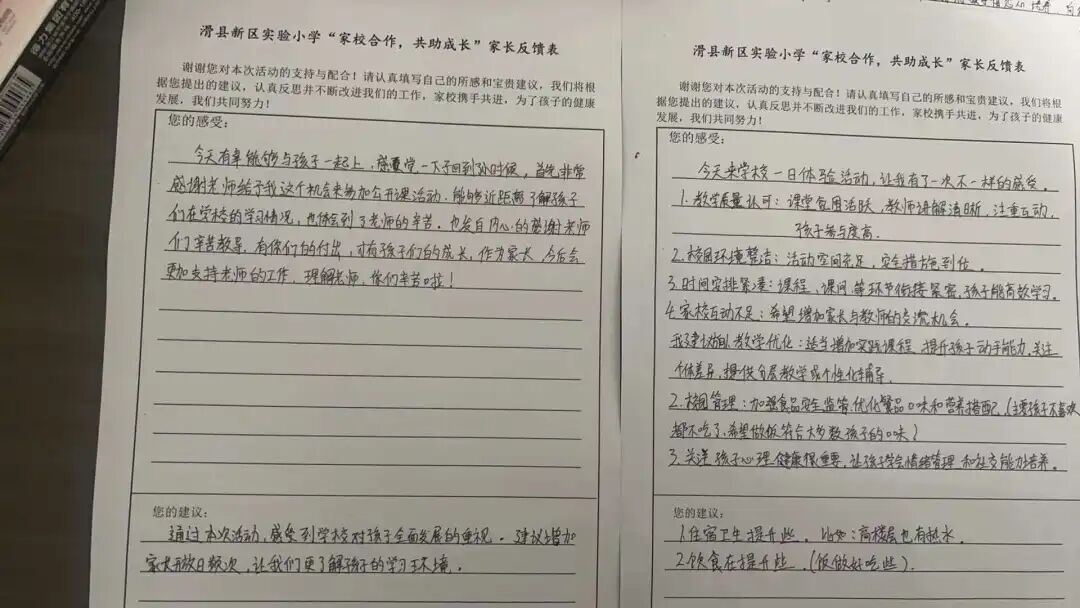 滑县新区实验小学“家校合作，共助成长”家长反馈表
谢谢您对本次活动的支持与配合！请认真填写自己的所感和宝贵建议，我们将根
据您提出的建议，认真反思并不断改进我们的工作，家校携手共进，为了孩子的健康
发展，我们共同努力！
您的感受：
今天有幸能够与孩子一起上，感觉一下子回到小时候，首先非常
感谢老师给予我这个机会来参加公开课活动，能够近距离了解孩子
们在学校的学习情况，也体会到了老师的辛苦。也发自内心的感谢老师
们辛苦教导，有你们的付出，才有孩子们的成长，作为家长，今后会
更加支持老师的工作，理解老师，你们辛苦啦！
您的建议：
通过本次活动，感受到学校对孩子全面发展的重视。建议增加
家长开放日频次，让我们更了解孩子的学习环境。
滑县新区实验小学“家校合作，共助成长”家长反馈表
谢谢您对本次活动的支持与配合！请认真填写自己的所感和宝贵建议，我们将根
据您提出的建议，认真反思并不断改进我们的工作，家校携手共进，为了孩子的健康
发展，我们共同努力！
您的感受：
今天来学校一日体验活动，让我有了一次不一样的感受。
1.教学质量认可：课堂氛围活跃，教师讲解清晰，注重互动，
孩子参与度高.
2.校园环境整洁：活动空间充足，安全措施到位。
3.时间安排紧凑：课程、课间等环节衔接紧密，孩子能高效学习。
4.家校互动不足：希望增加家长与教师的交流机会。
我建议教学优化：适当增加实践课程，提升孩子动手能力.关注
个体差异，提供分层教学或个性化辅导.
2.校园管理：加强食品安全监管，优化餐品口味和营养搭配（主要孩子不喜欢
都不吃了，希望做饭符合大多数孩子的口味）
3.关注孩子心理健康很重要，让孩子学会情绪管理和社交能力培养。
您的建议：
1.住宿卫生提升些。比如：高楼层也有热水.
2.饮食在提升些.（饭做好吃些）.